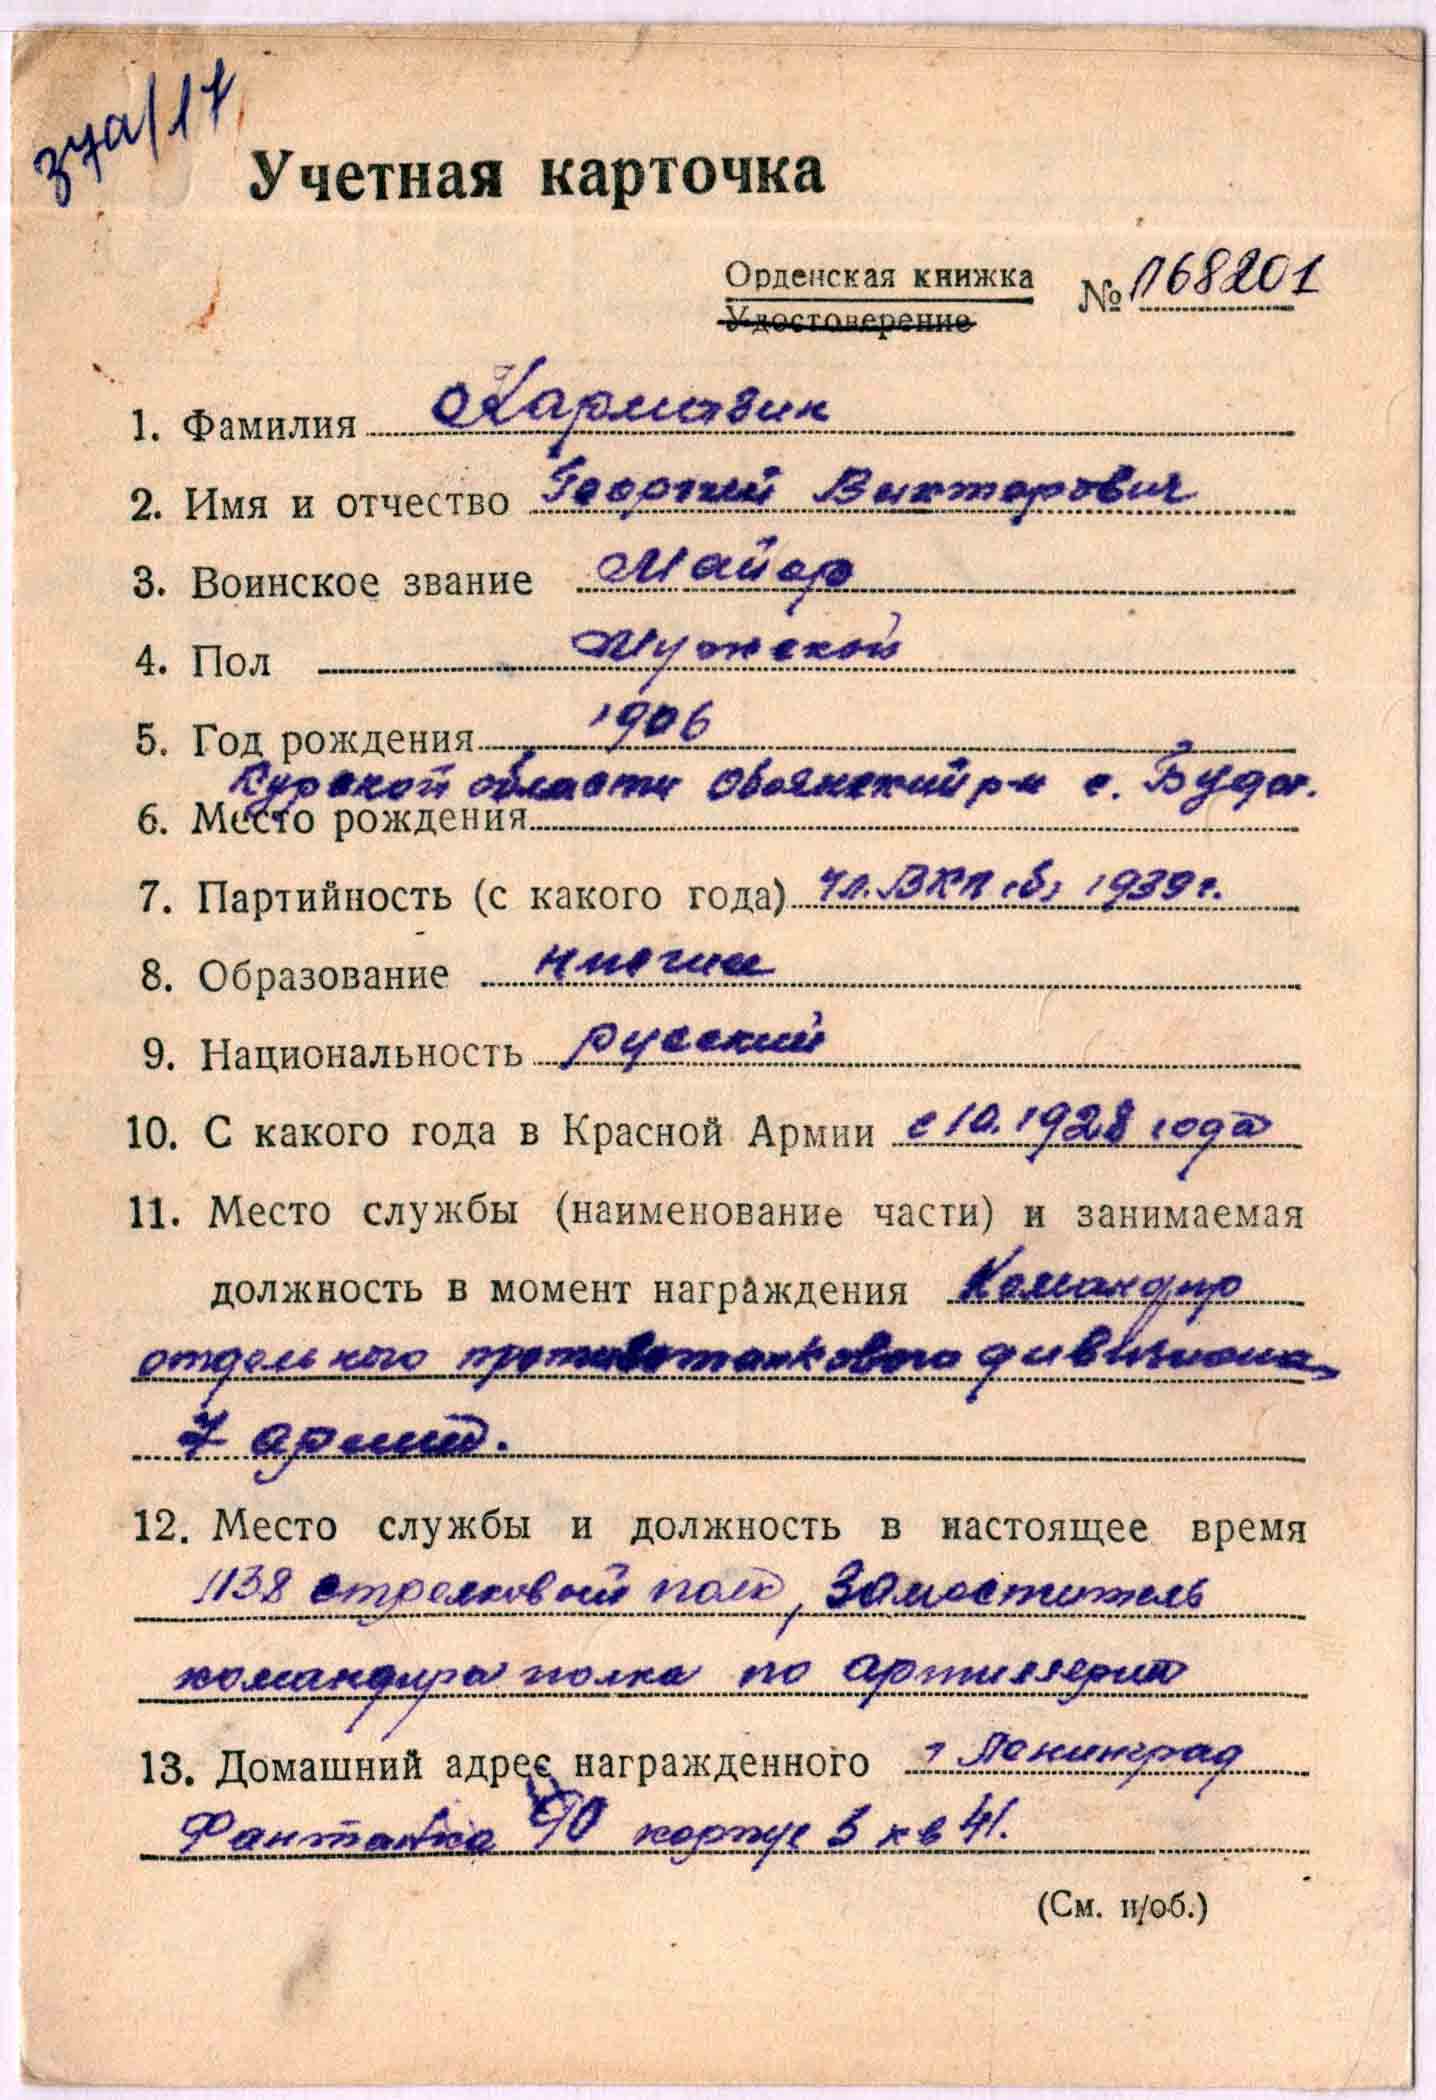 37а/17
Учетная карточка
Орденская книжка № 168201
Удостоверение
1. Фамилия Кармазин
2. Имя и отчество Георгий Викторович
3. Воинское звание Майор
4. Пол Мужской
5. Год рождения 1906
Курской области Обоянский р-н с. Буды.
6. Место рождения
7. Партийность (с какого года) чл. ВКП(б) 1939 г.
8. Образование
9. Национальность русский
10. С какого года в Красной Армии с 10.1928 года
11. Место службы (наименование части) и занимаемая
должность в момент награждения Командир
отдельного противотанкового дивизиона
7 армии.
12. Место службы и должность в настоящее время
1138 стрелковой полк, Заместитель
командира полка по артиллерии
13. Домашний адрес награжденного г Ленинград
Фантанка 90 корпус 5 кв 41.
(См. н/об.)